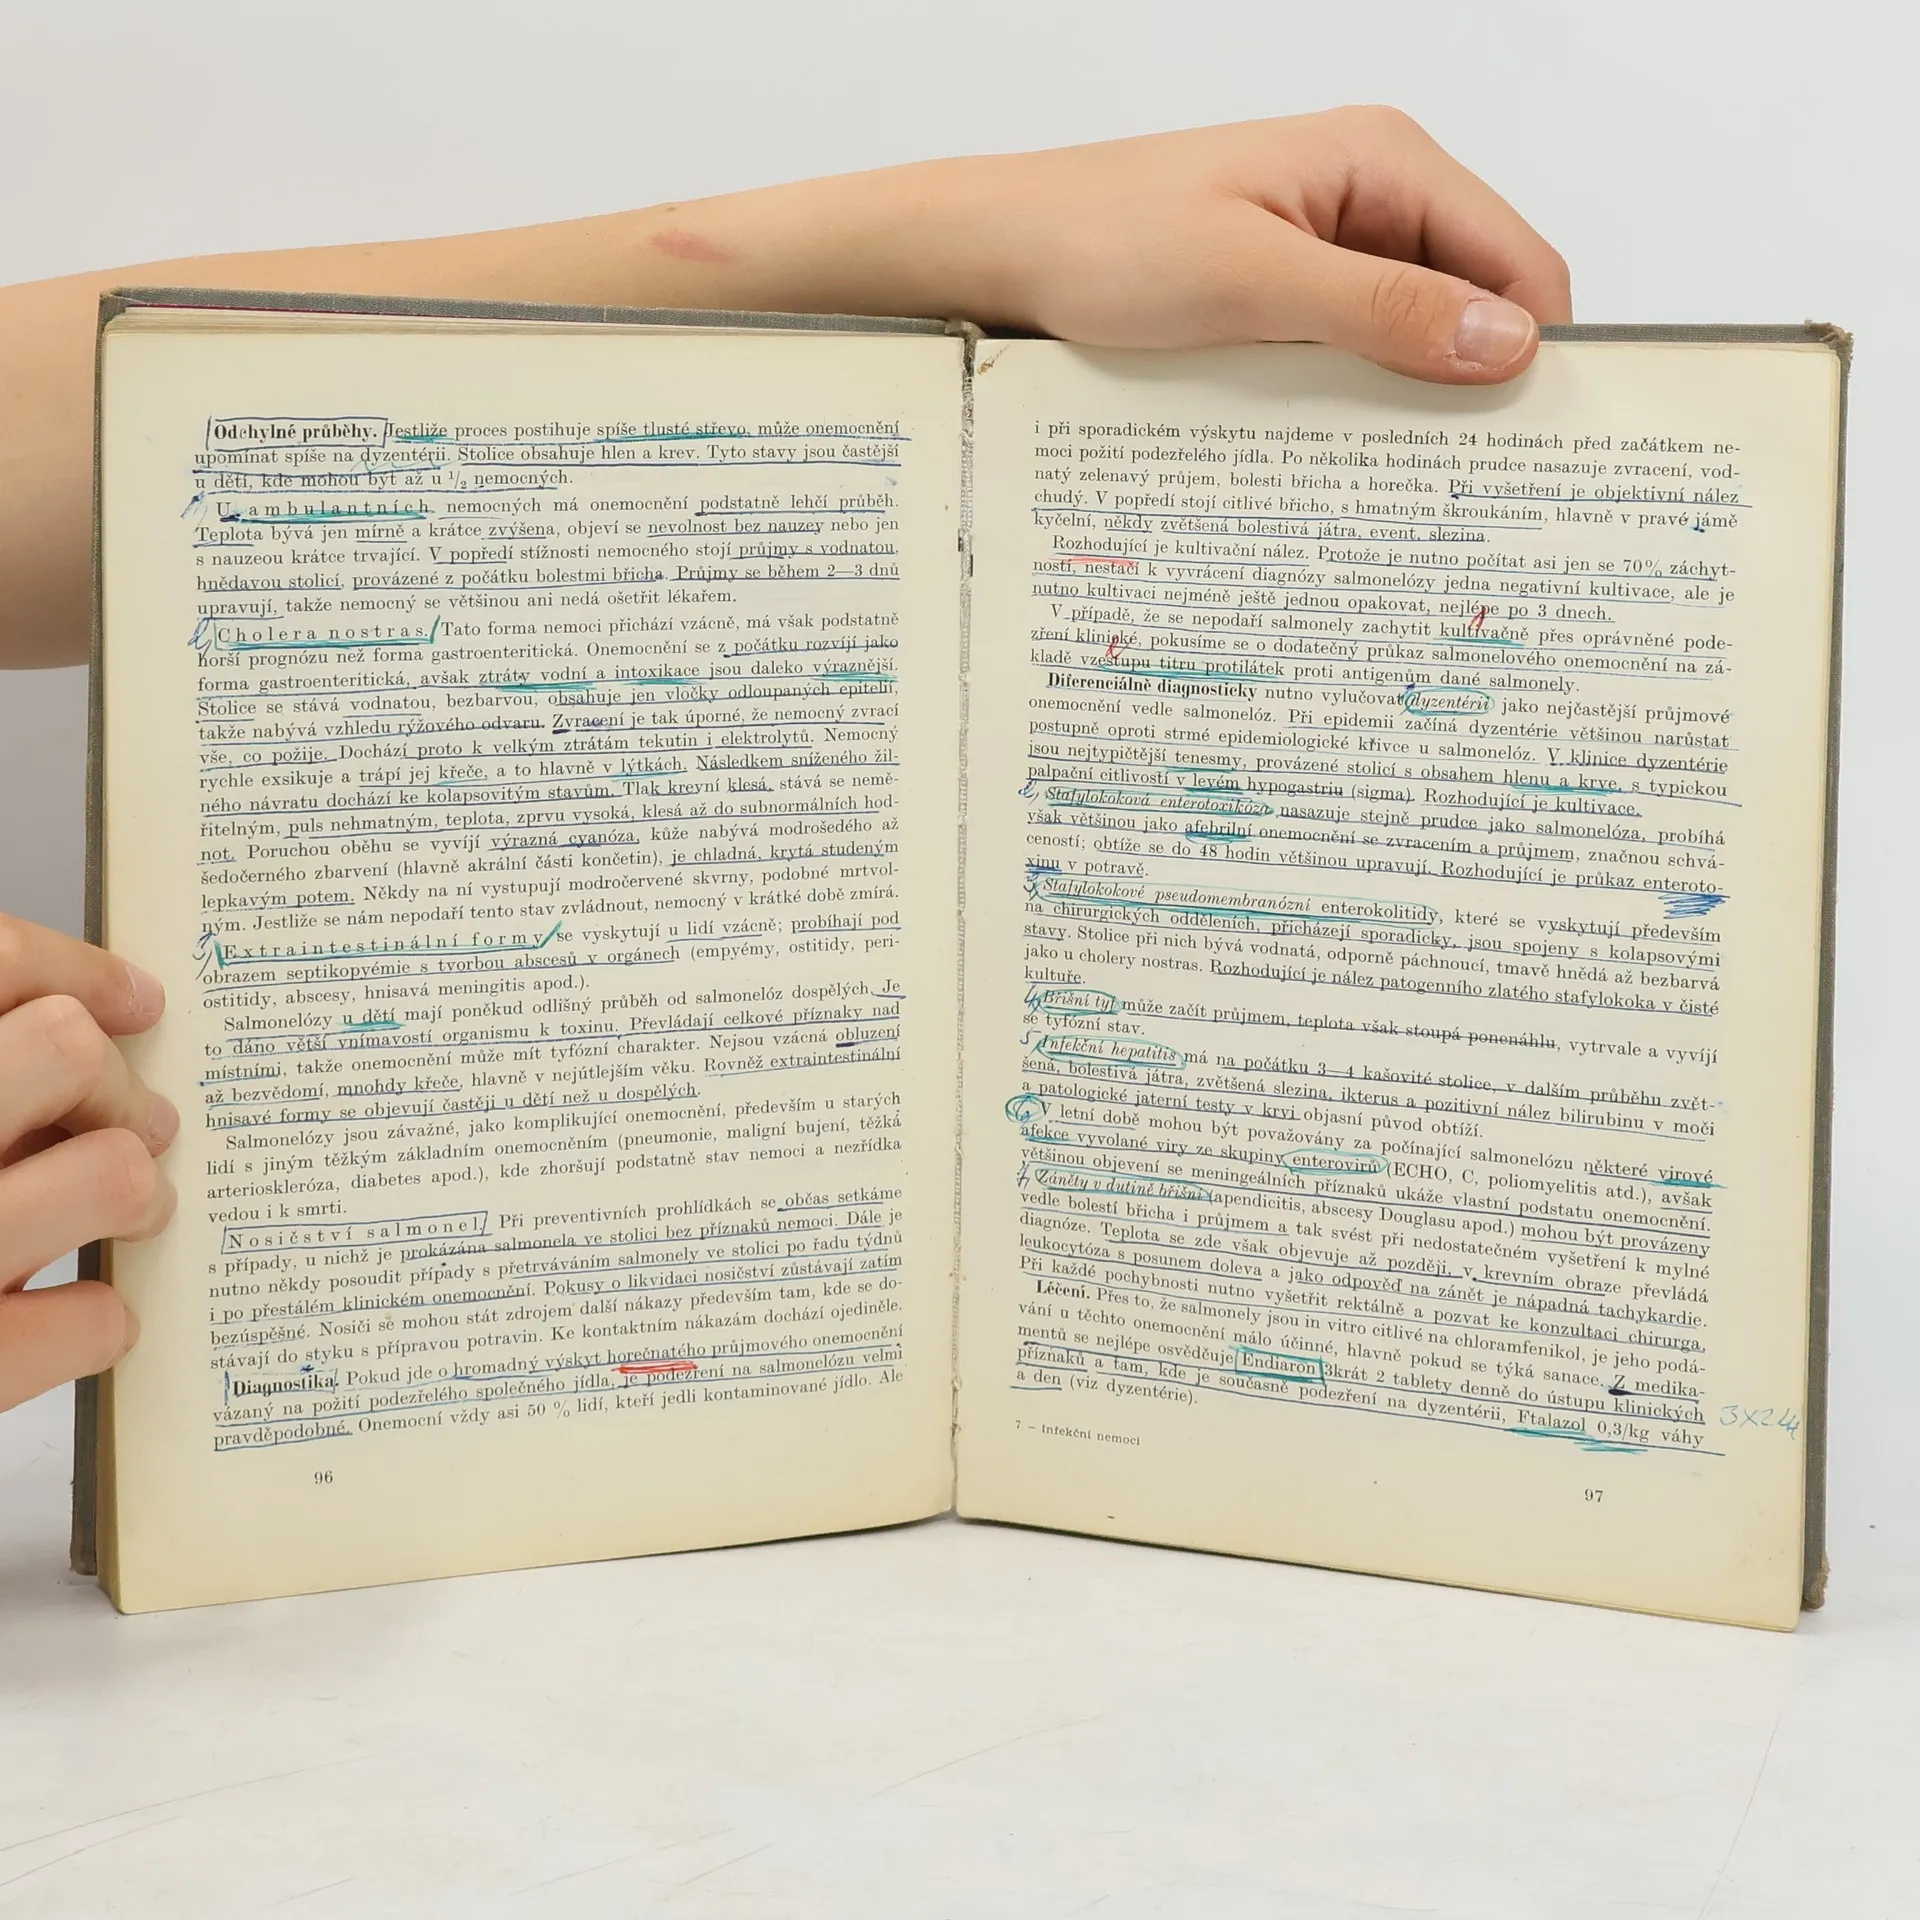 Odchylné průběhy. Jestliže proces postihuje spíše tlusté střevo, může onemocnění
upomínat spíše na dyzentérii. Stolice obsahuje hlen a krev. Tyto stavy jsou častější
u dětí, kde mohou být až u 1/2 nemocných.
U ambulantních nemocných má onemocnění podstatně lehčí průběh.
Teplota bývá jen mírně a krátce zvýšena, objeví se nevolnost bez nauzey nebo jen
s nauzeou krátce trvající. V popředí stížnosti nemocného stojí průjmy s vodnatou,
hnědavou stolicí, provázené z počátku bolestmi břicha. Průjmy se během 2—3 dnů
upravují, takže nemocný se většinou ani nedá ošetřit lékařem.
2) Cholera nostras. Tato forma nemoci přichází vzácně, má však podstatně
horší prognózu než forma gastroenteritická. Onemocnění se z počátku rozvíjí jako
forma gastroenteritická, avšak ztráty vodní a intoxikace jsou daleko výraznější.
Stolice se stává vodnatou, bezbarvou, obsahuje jen vločky odloupaných epitelií,
takže nabývá vzhledu rýžového odvaru. Zvracení je tak úporné, že nemocný zvrací
vše, co požije. Dochází proto k velkým ztrátám tekutin i elektrolytů. Nemocný
rychle exsikuje a trápí jej křeče, a to hlavně v lýtkách. Následkem sníženého žil-
ného návratu dochází ke kolapsovitým stavům. Tlak krevní klesá, stává se nemě-
řitelným, puls nehmatným, teplota, zprvu vysoká, klesá až do subnormálních hod-
not. Poruchou oběhu se vyvíjí výrazná cyanóza, kůže nabývá modrošedého až
šedočerného zbarvení (hlavně akrální části končetin), je chladná, krytá studeným
lepkavým potem. Někdy na ní vystupují modročervené skvrny, podobné mrtvol-
ným. Jestliže se nám nepodaří tento stav zvládnout, nemocný v krátké době zmírá.
3) Extraintestinální formy se vyskytují u lidí vzácně; probíhají pod
obrazem septikopyémie s tvorbou abscesů v orgánech (empyémy, ostitidy, peri-
ostitidy, abscesy, hnisavá meningitis apod.).
Salmonelózy u dětí mají poněkud odlišný průběh od salmonelóz dospělých. Je
to dáno větší vnímavostí organismu k toxinu. Převládají celkové příznaky nad
místními, takže onemocnění může mít tyfózní charakter. Nejsou vzácná obluzení
až bezvědomí, mnohdy křeče, hlavně v nejútlejším věku. Rovněž extraintestinální
hnisavé formy se objevují častěji u dětí než u dospělých.
Salmonelózy jsou závažné, jako komplikující onemocnění, především u starých
lidí s jiným těžkým základním onemocněním (pneumonie, maligní bujení, těžká
arterioskleróza, diabetes apod.), kde zhoršují podstatně stav nemoci a nezřídka
vedou i k smrti.
Nosičství salmonel. Při preventivních prohlídkách se občas setkáme
s případy, u nichž je prokázána salmonela ve stolici bez příznaků nemoci. Dále je
nutno někdy posoudit případy s přetrváváním salmonely ve stolici po řadu týdnů
i po přestálém klinickém onemocnění. Pokusy o likvidaci nosičství zůstávají zatím
bezúspěšné. Nosiči se mohou stát zdrojem další nákazy především tam, kde se do-
stávají do styku s přípravou potravin. Ke kontaktním nákazám dochází ojediněle.
Diagnostika. Pokud jde o hromadný výskyt horečnatého průjmového onemocnění
vázaný na požití podezřelého společného jídla, je podezření na salmonelózu velmi
pravděpodobné. Onemocní vždy asi 50 % lidí, kteří jedli kontaminované jídlo. Ale
96
i při sporadickém výskytu najdeme v posledních 24 hodinách před začátkem ne-
moci požití podezřelého jídla. Po několika hodinách prudce nasazuje zvracení, vod-
natý zelenavý průjem, bolesti břicha a horečka. Při vyšetření je objektivní nález
chudý. V popředí stojí citlivé břicho, s hmatným škroukáním, hlavně v pravé jámě
kyčelní, někdy zvětšená bolestivá játra, event. slezina.
Rozhodující je kultivační nález. Protože je nutno počítat asi jen se 70% záchyt-
ností, nestačí k vyvrácení diagnózy salmonelózy jedna negativní kultivace, ale je
nutno kultivaci nejméně ještě jednou opakovat, nejlépe po 3 dnech.
V případě, že se nepodaří salmonely zachytit kultivačně přes oprávněné pode-
zření klinické, pokusíme se o dodatečný průkaz salmonelového onemocnění na zá-
kladě vzestupu titru protilátek proti antigenům dané salmonely.
Diferenciálně diagnosticky nutno vylučovat dyzentérii jako nejčastější průjmové
onemocnění vedle salmonelóz. Při epidemii začíná dyzentérie většinou narůstat
postupně oproti strmé epidemiologické křivce u salmonelóz. V klinice dyzentérie
jsou nejtypičtější tenesmy, provázené stolicí s obsahem hlenu a krve, s typickou
palpační citlivostí v levém hypogastriu (sigma). Rozhodující je kultivace.
2) Stafylokoková enterotoxikóza nasazuje stejně prudce jako salmonelóza, probíhá
však většinou jako afebrilní onemocnění se zvracením a průjmem, značnou schvá-
ceností; obtíže se do 48 hodin většinou upravují. Rozhodující je průkaz enteroto-
xinu v potravě.
3) Stafylokokové pseudomembranózní enterokolitidy, které se vyskytují především
na chirurgických odděleních, přicházejí sporadicky, jsou spojeny s kolapsovými
stavy. Stolice při nich bývá vodnatá, odporně páchnoucí, tmavě hnědá až bezbarvá
jako u cholery nostras. Rozhodující je nález patogenního zlatého stafylokoka v čisté
kultuře.
4) Břišní tyf může začít průjmem, teplota však stoupá ponenáhlu, vytrvale a vyvíjí
se tyfózní stav.
5) Infekční hepatitis má na počátku 3—4 kašovité stolice, v dalším průběhu zvět-
šená, bolestivá játra, zvětšená slezina, ikterus a pozitivní nález bilirubinu v moči
a patologické jaterní testy v krvi objasní původ obtíží.
6) V letní době mohou být považovány za počínající salmonelózu některé virové
afekce vyvolané viry ze skupiny enterovirů (ECHO, C, poliomyelitis atd.), avšak
většinou objevení se meningeálních příznaků ukáže vlastní podstatu onemocnění.
7) Záněty v dutině břišní (apendicitis, abscesy Douglasu apod.) mohou být provázeny
vedle bolestí břicha i průjmem a tak svést při nedostatečném vyšetření k mylné
diagnóze. Teplota se zde však objevuje až později, v krevním obraze převládá
leukocytóza s posunem doleva a jako odpověď na zánět je nápadná tachykardie.
Při každé pochybnosti nutno vyšetřit rektálně a pozvat ke konzultaci chirurga.
Léčení. Přes to, že salmonely jsou in vitro citlivé na chloramfenikol, je jeho podá-
vání u těchto onemocnění málo účinné, hlavně pokud se týká sanace. Z medika-
mentů se nejlépe osvědčuje Endiaron 3krát 2 tablety denně do ústupu klinických
příznaků a tam, kde je současně podezření na dyzentérii, Ftalazol 0,3/kg váhy
a den (viz dyzentérie).
7 – Infekční nemoci
97